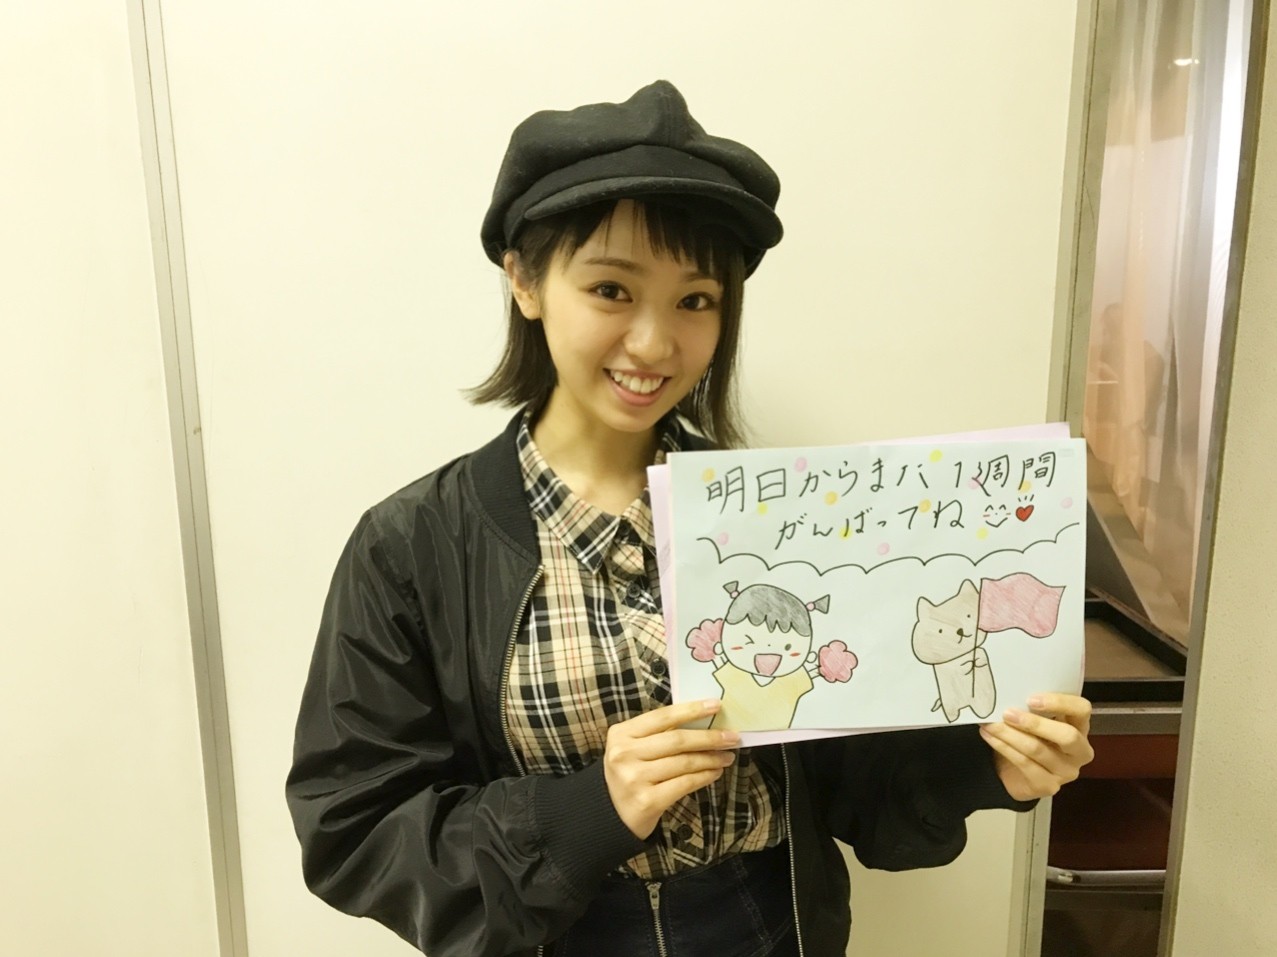 明日からまた1週間
がんばってね